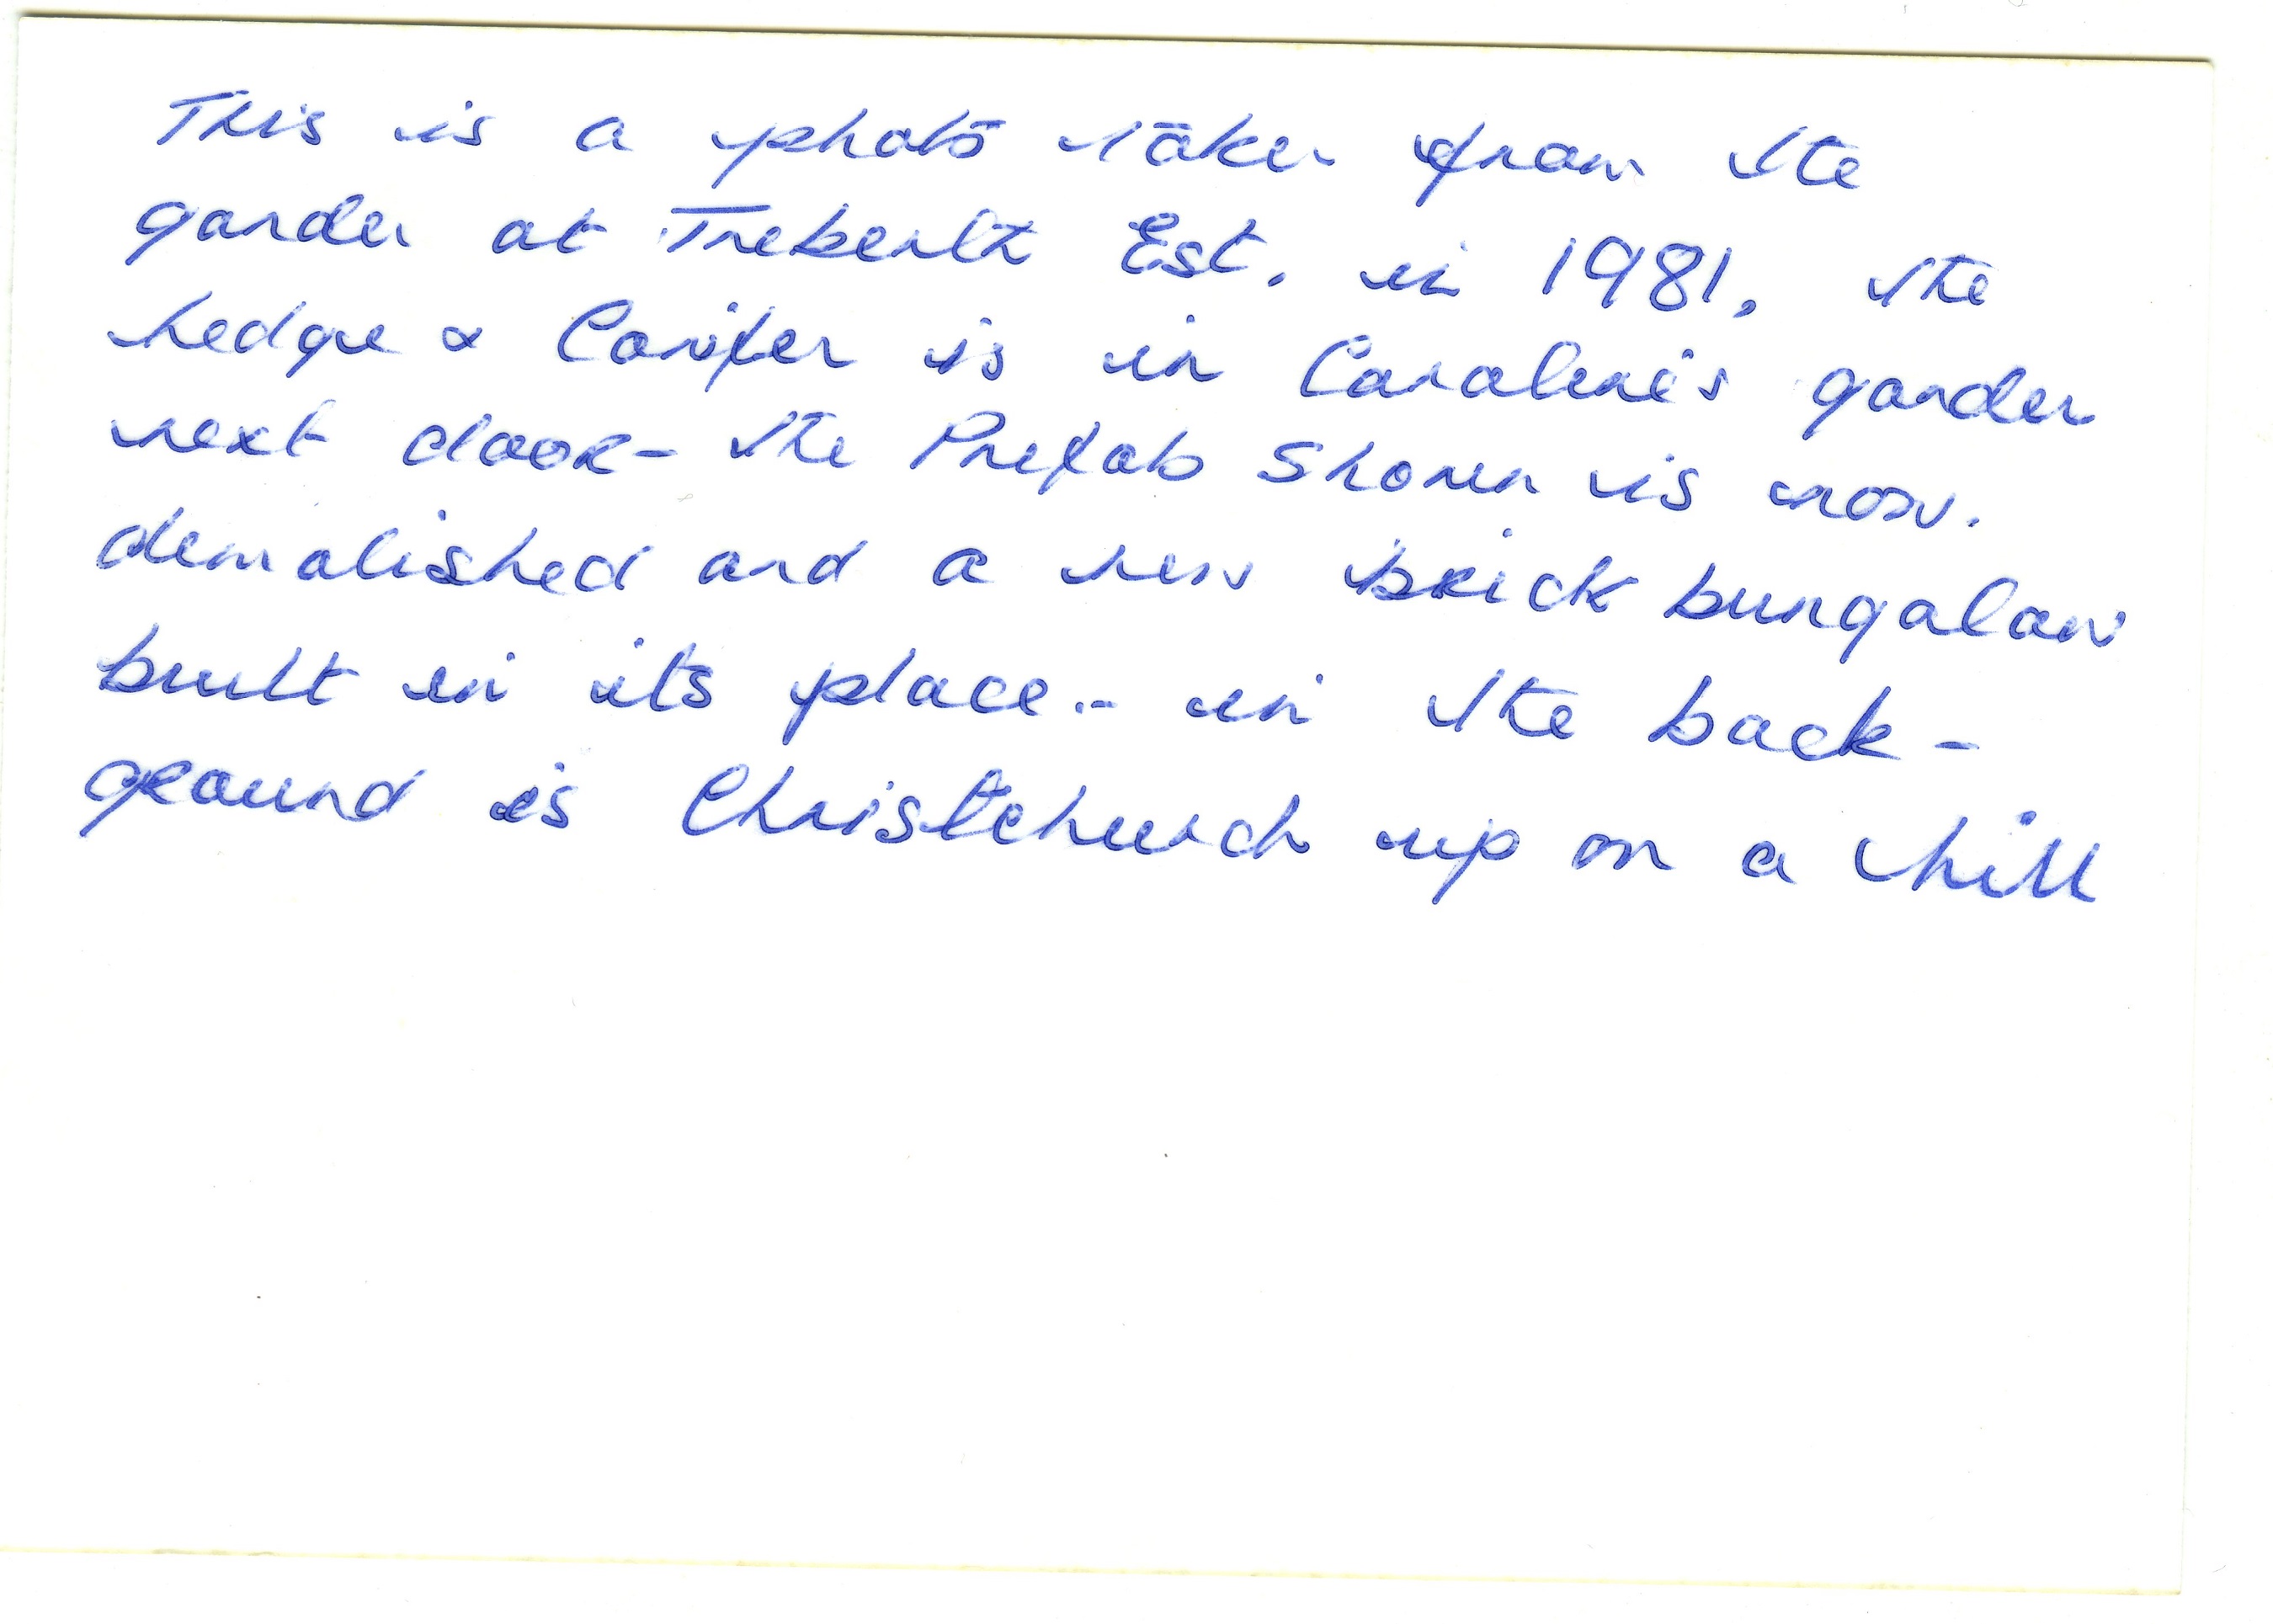 This is a photo taken from the
garden at Treberth Est. in 1981, the
hedge & Conifer is in Caroline's garden
next door - the Prefab shown is now.
demolished and a new brick bungalow
built in its place.- in the back-
ground is Christchurch up on a hill